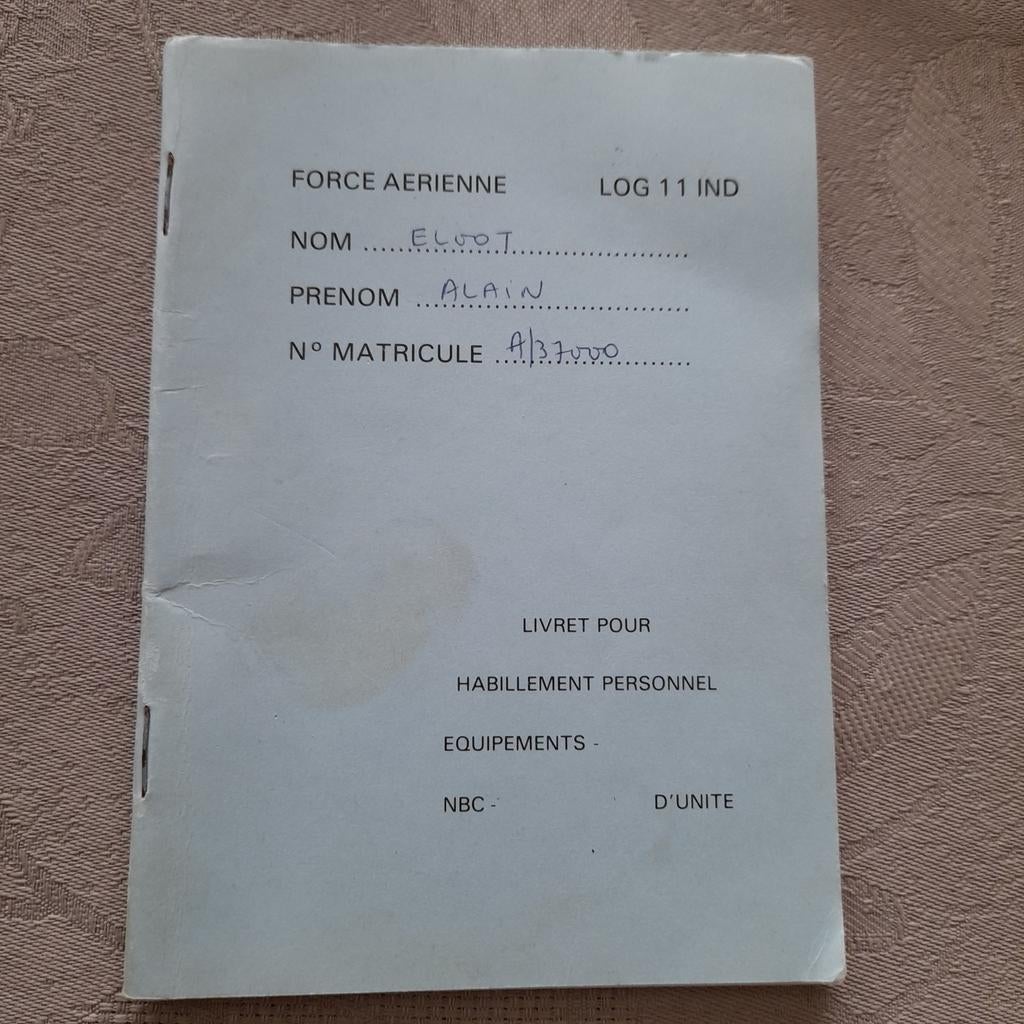 FORCE AERIENNE LOG 11 IND
NOM ELOOT
PRENOM ALAIN
N° MATRICULE A/37000
LIVRET POUR
HABILLEMENT PERSONNEL
EQUIPEMENTS -
NBC - D'UNITE